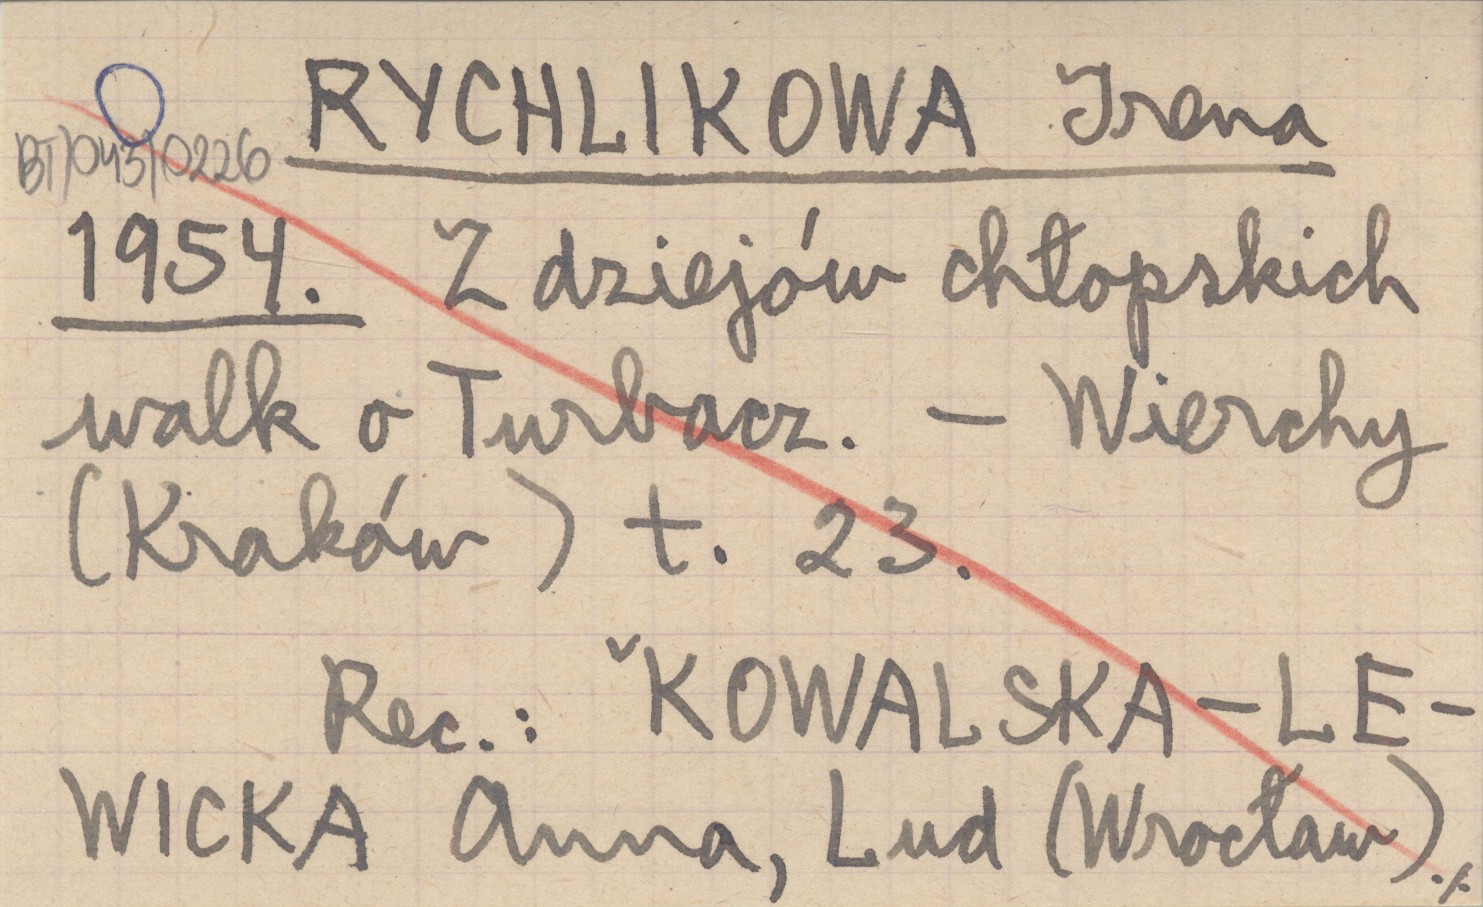 RYCHLIKOWA Irena
BT/043/0226
1954. Z dziejów chłopskich
walk o Turbacz. – Wierchy
(Kraków) t. 23.
Rec.: ˇKOWALSKA-LE-
WICKA Anna, Lud (Wrocław) ./.